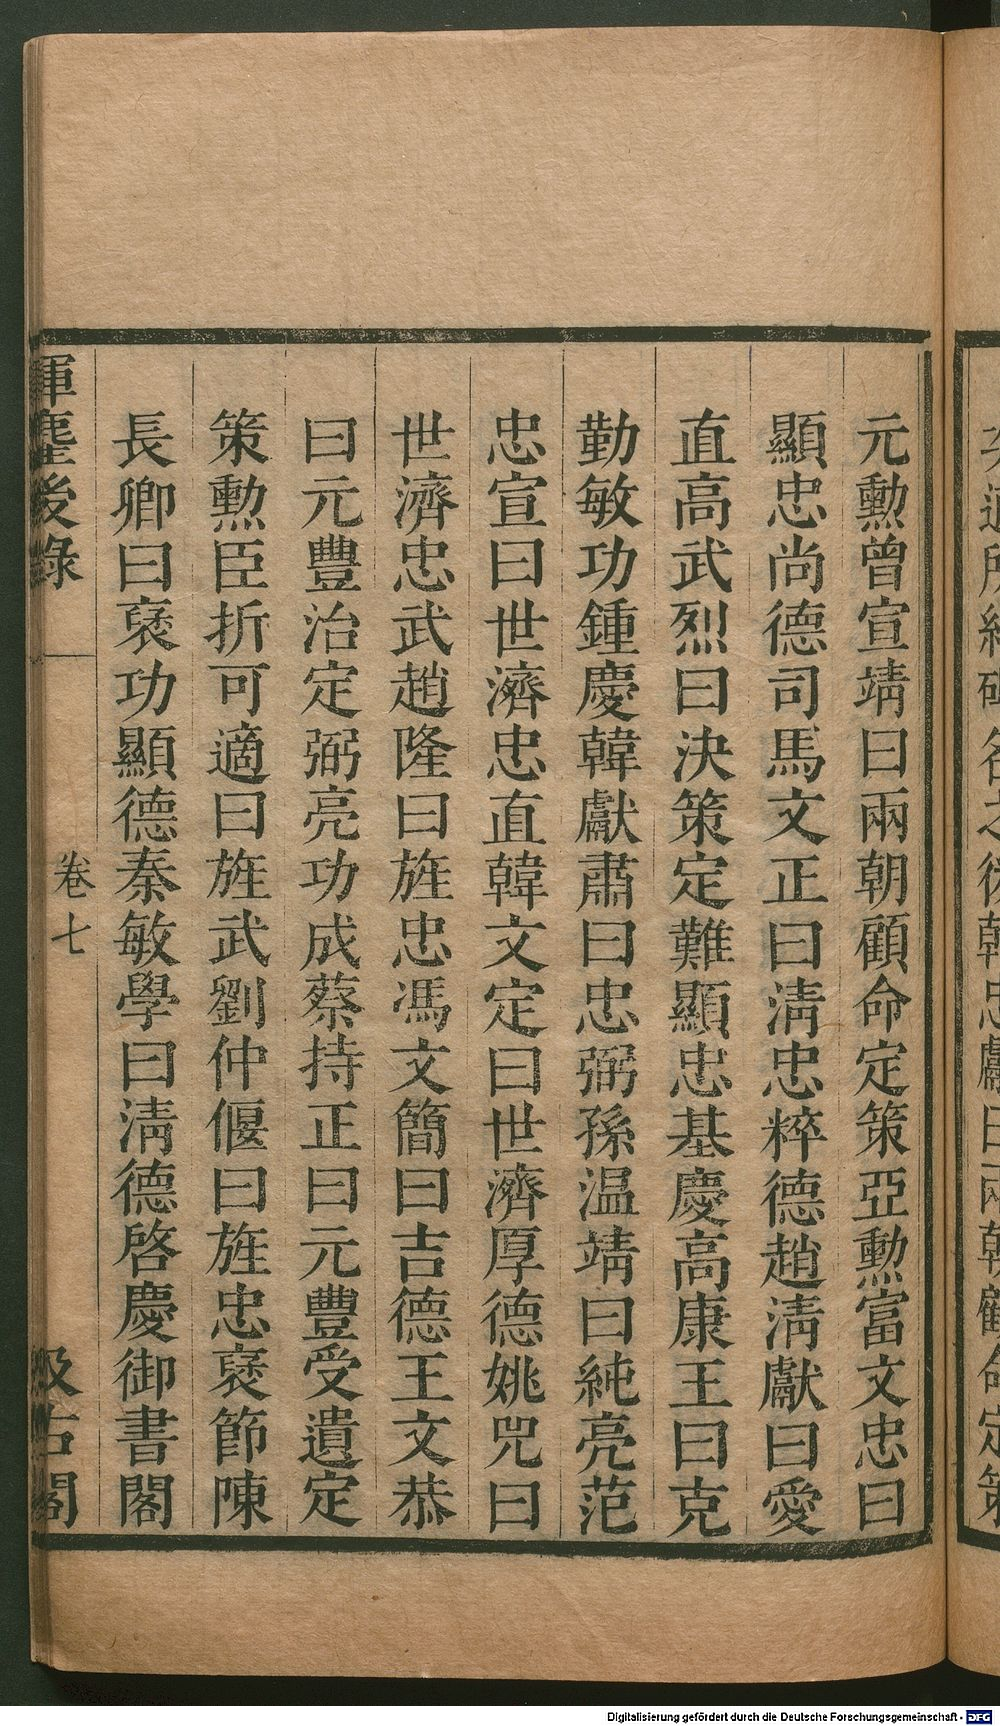 元勳曾宣靖曰兩朝顧命定策亞勳富文忠曰
顯忠尚德司馬文正曰淸忠粹德趙淸獻曰愛
直高武烈曰決策定難顯忠基慶高康王曰克
勤敏功鍾慶韓獻肅曰忠弼孫温靖曰純亮范
忠宣曰世濟忠直韓文定曰世濟厚德姚兕曰
世濟忠武趙隆曰旌忠馮文簡曰吉德王文恭
曰元豐治定弼亮功成蔡持正曰元豐受遺定
策勳臣折可適曰旌武劉仲偃曰旌忠褎節陳
長卿曰褎功顯德秦敏學曰淸德啓慶御書閣
揮塵後錄 卷七 汲古閣
Digitalisierung gefördert durch die Deutsche Forschungsgemeinschaft - DFG